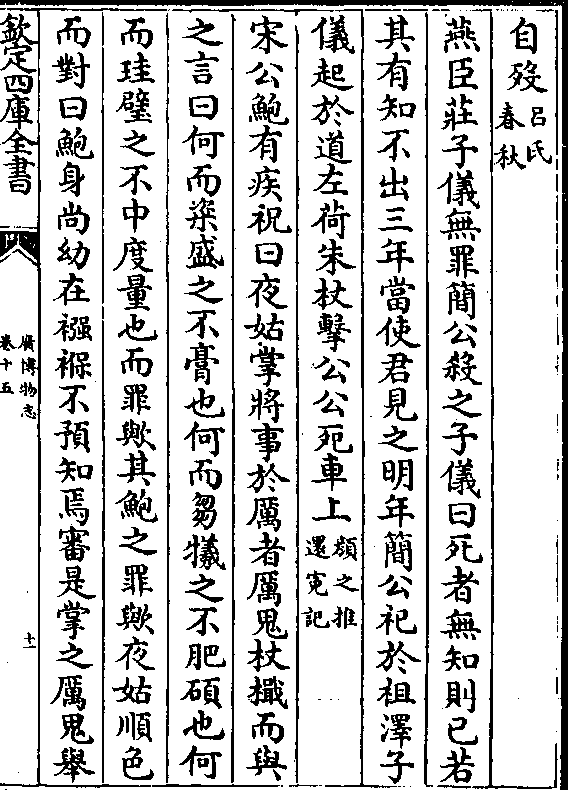 自歿呂氏春秋
燕臣莊子儀無罪簡公殺之子儀曰死者無知則已若
其有知不出三年當使君見之明年簡公祀於祖澤子
儀起於道左荷朱杖擊公公死車上顔之推還寃記
宋公鮑有疾祝曰夜姑掌將事於厲者厲鬼杖檝而與
之言曰何而粢盛之不膏也何而芻犧之不肥碩也何
而珪璧之不中度量也而罪歟其鮑之罪歟夜姑順色
而對曰鮑身尚幼在襁褓不預知焉審是掌之厲鬼舉
欽定四庫全書
廣博物志
卷十五
十一